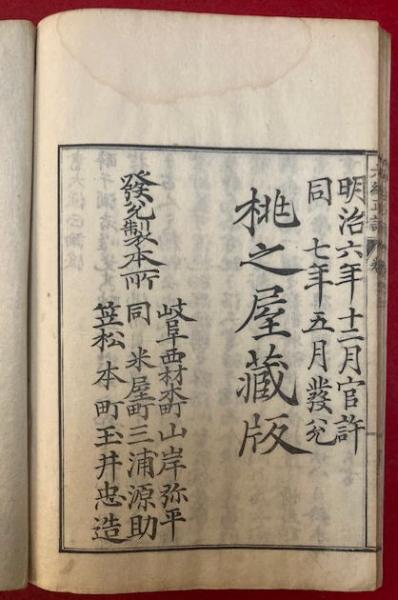 明治六年十二月官許
同七年五月發兌
桃之屋藏版
發兌製本所
岐阜西材木町山岸弥平
同米屋町三浦源助
笠松本町玉井忠造